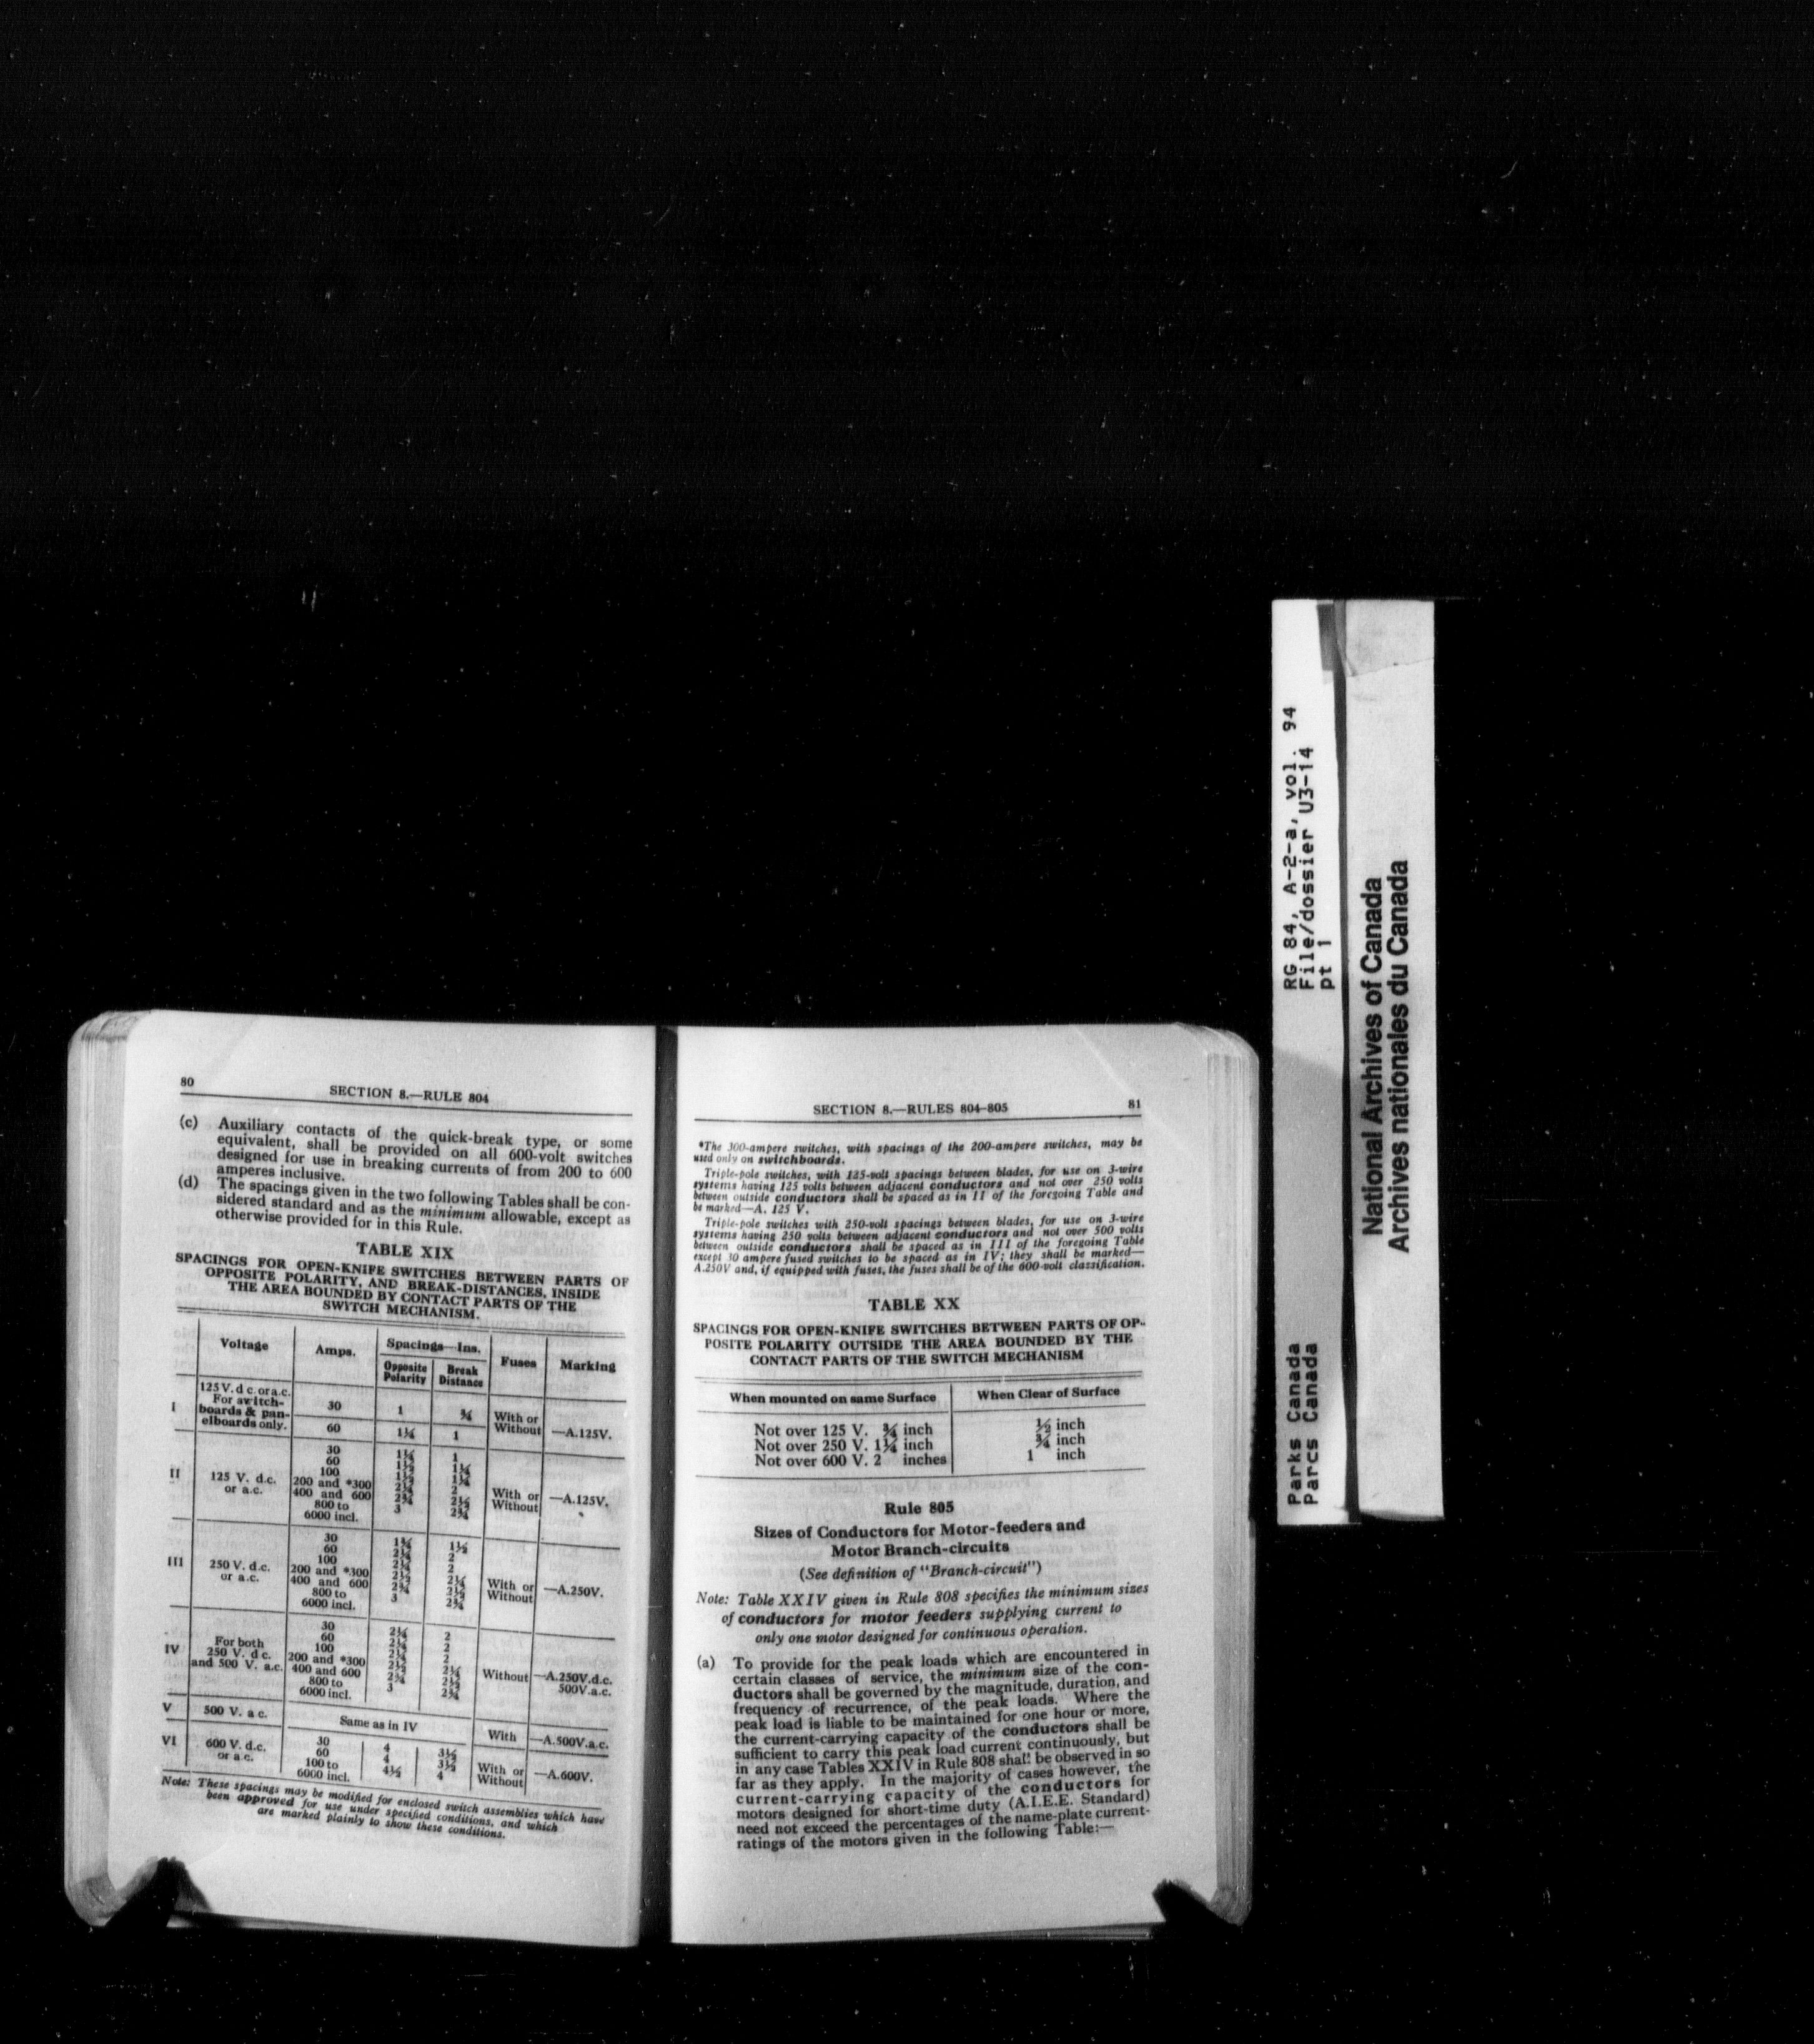 80
SECTION 8.—RULE 804
(c) Auxiliary contacts of the quick-break type, or some
equivalent, shall be provided on all 600-volt switches
designed for use in breaking currents of from 200 to 600
amperes inclusive.
(d) The spacings given in the two following Tables shall be con-
sidered standard and as the minimum allowable, except as
otherwise provided for in this Rule.
TABLE XIX
SPACINGS FOR OPEN-KNIFE SWITCHES BETWEEN PARTS OF
OPPOSITE POLARITY, AND BREAK-DISTANCES, INSIDE
THE AREA BOUNDED BY CONTACT PARTS OF THE
SWITCH MECHANISM.
Voltage Amps. Spacings—Ins. Fuses Marking
Opposite Polarity Break Distance
I 125 V. d c. or a.c. For switch-boards & pan-elboards only.
30 1 ¾
60 1¼ 1
With or Without —A.125V.
II 125 V. d.c. or a.c.
30 1¼ 1
60 1½ 1¼
100 1½ 1¼
200 and *300 2¼ 2
400 and 600 2¾ 2½
800 to 6000 incl. 3 2¾
With or Without —A.125V.
III 250 V. d.c. or a.c.
30 1¾ 1½
60 2¼ 2
100 2¼ 2
200 and *300 2½ 2¼
400 and 600 2¾ 2½
800 to 6000 incl. 3 2¾
With or Without —A.250V.
IV For both 250 V. d c. and 500 V. a.c.
30 2¼ 2
60 2¼ 2
100 2¼ 2
200 and *300 2½ 2¼
400 and 600 2¾ 2½
800 to 6000 incl. 3 2¾
Without —A.250V.d.c. 500V.a.c.
V 500 V. a c. Same as in IV With —A.500V.a.c.
VI 600 V. d.c. or a.c.
30 4 3½
60 4 3½
100 to 6000 incl. 4½ 4
With or Without —A.600V.
Note: These spacings may be modified for enclosed switch assemblies which have
been approved for use under specified conditions, and which
are marked plainly to show these conditions.
SECTION 8.—RULES 804-805
81
*The 300-ampere switches, with spacings of the 200-ampere switches, may be
used only on switchboards.
Triple-pole switches, with 125-volt spacings between blades, for use on 3-wire
systems having 125 volts between adjacent conductors and not over 250 volts
between outside conductors shall be spaced as in II of the foregoing Table and
be marked—A. 125 V.
Triple-pole switches with 250-volt spacings between blades, for use on 3-wire
systems having 250 volts between adjacent conductors and not over 500 volts
between outside conductors shall be spaced as in III of the foregoing Table
except 30 ampere fused switches to be spaced as in IV; they shall be marked—
A.250V and, if equipped with fuses, the fuses shall be of the 600-volt classification.
TABLE XX
SPACINGS FOR OPEN-KNIFE SWITCHES BETWEEN PARTS OF OP-
POSITE POLARITY OUTSIDE THE AREA BOUNDED BY THE
CONTACT PARTS OF THE SWITCH MECHANISM
When mounted on same Surface When Clear of Surface
Not over 125 V. ¾ inch ½ inch
Not over 250 V. 1¼ inch ¾ inch
Not over 600 V. 2 inches 1 inch
Rule 805
Sizes of Conductors for Motor-feeders and
Motor Branch-circuits
(See definition of "Branch-circuit")
Note: Table XXIV given in Rule 808 specifies the minimum sizes
of conductors for motor feeders supplying current to
only one motor designed for continuous operation.
(a) To provide for the peak loads which are encountered in
certain classes of service, the minimum size of the con-
ductors shall be governed by the magnitude, duration, and
frequency of recurrence, of the peak loads. Where the
peak load is liable to be maintained for one hour or more,
the current-carrying capacity of the conductors shall be
sufficient to carry this peak load current continuously, but
in any case Tables XXIV in Rule 808 shall be observed in so
far as they apply. In the majority of cases however, the
current-carrying capacity of the conductors for
motors designed for short-time duty (A.I.E.E. Standard)
need not exceed the percentages of the name-plate current-
ratings of the motors given in the following Table:—
RG 84, A-2-a, vol. 94
File/dossier U3-14
pt 1
Parks Canada
Parcs Canada
National Archives of Canada
Archives nationales du Canada